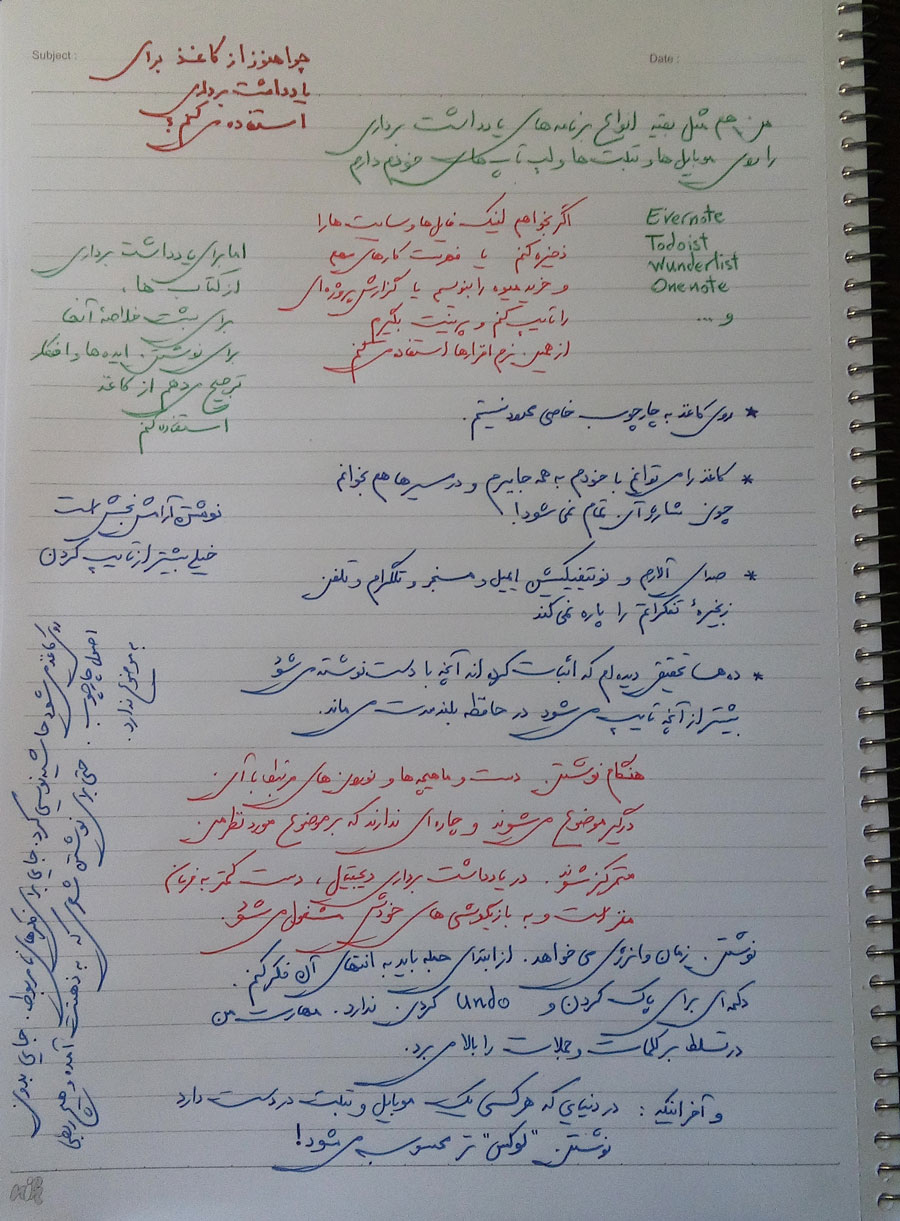 Subject :
Date :
چرا هنوز از کاغذ برای
یادداشت برداری
استفاده می کنم؟
من هم مثل بقیه انواع برنامه های یادداشت برداری
را روی موبایل ها و تبلت ها و لپ تاپ های خودم دارم
Evernote
Todoist
Wunderlist
Onenote
و ...
اگر بخواهم لینک فایل ها و سایت ها را
ذخیره کنم یا فهرست کارهای مهم
و خرید میوه را بنویسم یا گزارش پروژه ای
را تایپ کنم و پرینت بگیرم
از همین نرم افزارها استفاده می کنم
اما برای یادداشت برداری
از کتاب ها ،
برای ثبت خلاصهٔ آنها
برای نوشتن ایده ها و افکار
ترجیح می دهم از کاغذ
استفاده کنم
* روی کاغذ به چارچوب خاصی محدود نیستم.
* کاغذ را می توانم با خودم به همه جا ببرم و در مسیرها هم بخوانم
چون شارژ آن تمام نمی شود!
نوشتن آرامش بخش است
خیلی بیشتر از تایپ کردن
* صدای آلارم و نوتیفیکیشن ایمیل و مسنجر و تلگرام و تلفن
زنجیرهٔ تفکراتم را پاره نمی کند
* ده ها تحقیق دیده ام که اثبات کرده اند آنچه با دست نوشته می شود
بیشتر از آنچه تایپ می شود در حافظه بلندمدت می ماند.
هنگام نوشتن دست و ماهیچه ها و نورون های مرتبط با آن
درگیر موضوع می شوند و چاره ای ندارند که بر موضوع مورد نظر من
متمرکز شوند. در یادداشت برداری دیجیتال ، دست کمتر به فرمان
مغز است و به بازیگوشی های خودش مشغول می شود.
نوشتن زمان و انرژی می خواهد. از ابتدای جمله باید به انتهای آن فکر کنم.
دکمه ای برای پاک کردن و Undo کردن ندارد. مهارت من
در تسلط بر کلمات و جملات را بالا می برد.
و آخر اینکه : در دنیایی که هر کسی یک موبایل و تبلت در دست دارد
نوشتن "لوکس" تر محسوب می شود!
روی کاغذ می شود حاشیه نویسی کرد. جایی برای فکرهای نامربوط. جایی بدون
اصول چارچوب. حتی برای نوشتن شعری که به ذهنت آمده و هیچ ربطی
به موضوع ندارد.